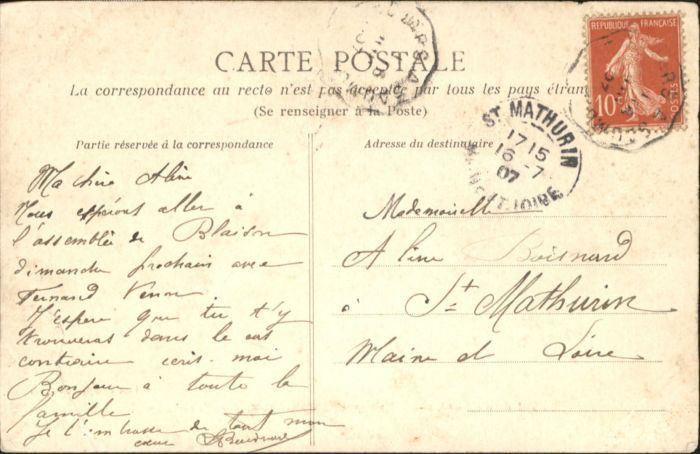 CARTE POSTALE
La correspondance au recto n'est pas acceptée par tous les pays étran
(Se renseigner à la Poste)
Partie réservée à la correspondance
Adresse du destinataire
REPUBLIQUE FRANÇAISE
10c
POSTES
ST MATHURIN
17 15
16 -7
07
MAINE-ET-LOIRE
Ma chère Aline
Nous espérons aller à
l'assemblée de Blaison
dimanche prochain avec
Fernand
J'espère que tu t'y
trouveras dans le cas
contraire écris-moi
Bonjour à toute la
famille
Je t'embrasse de tout mon
cœur
Mademoiselle
Aline Boisnard
à St Mathurin
Maine et Loire